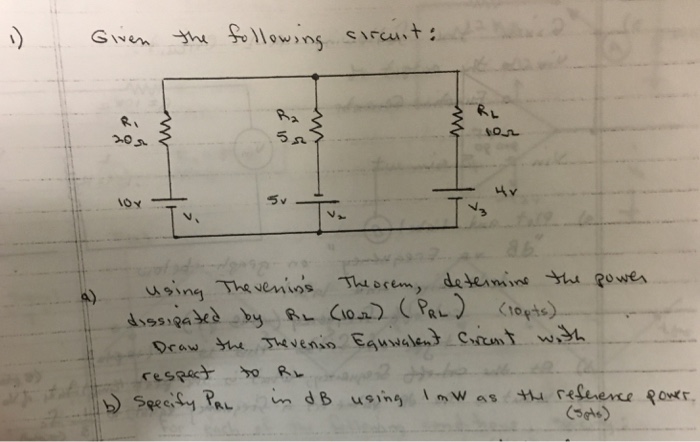 1) Given the following circuit:
R1
20Ω
R2
5Ω
RL
10Ω
10v
V1
5v
V2
4v
V3
a) using Thevenin's Theorem, determine the power
dissipated by RL (10Ω) (PRL) (10pts)
Draw the Thevenin Equivalent Circuit with
respect to RL
b) Specify PRL in dB using 1mW as the reference power.
(5pts)